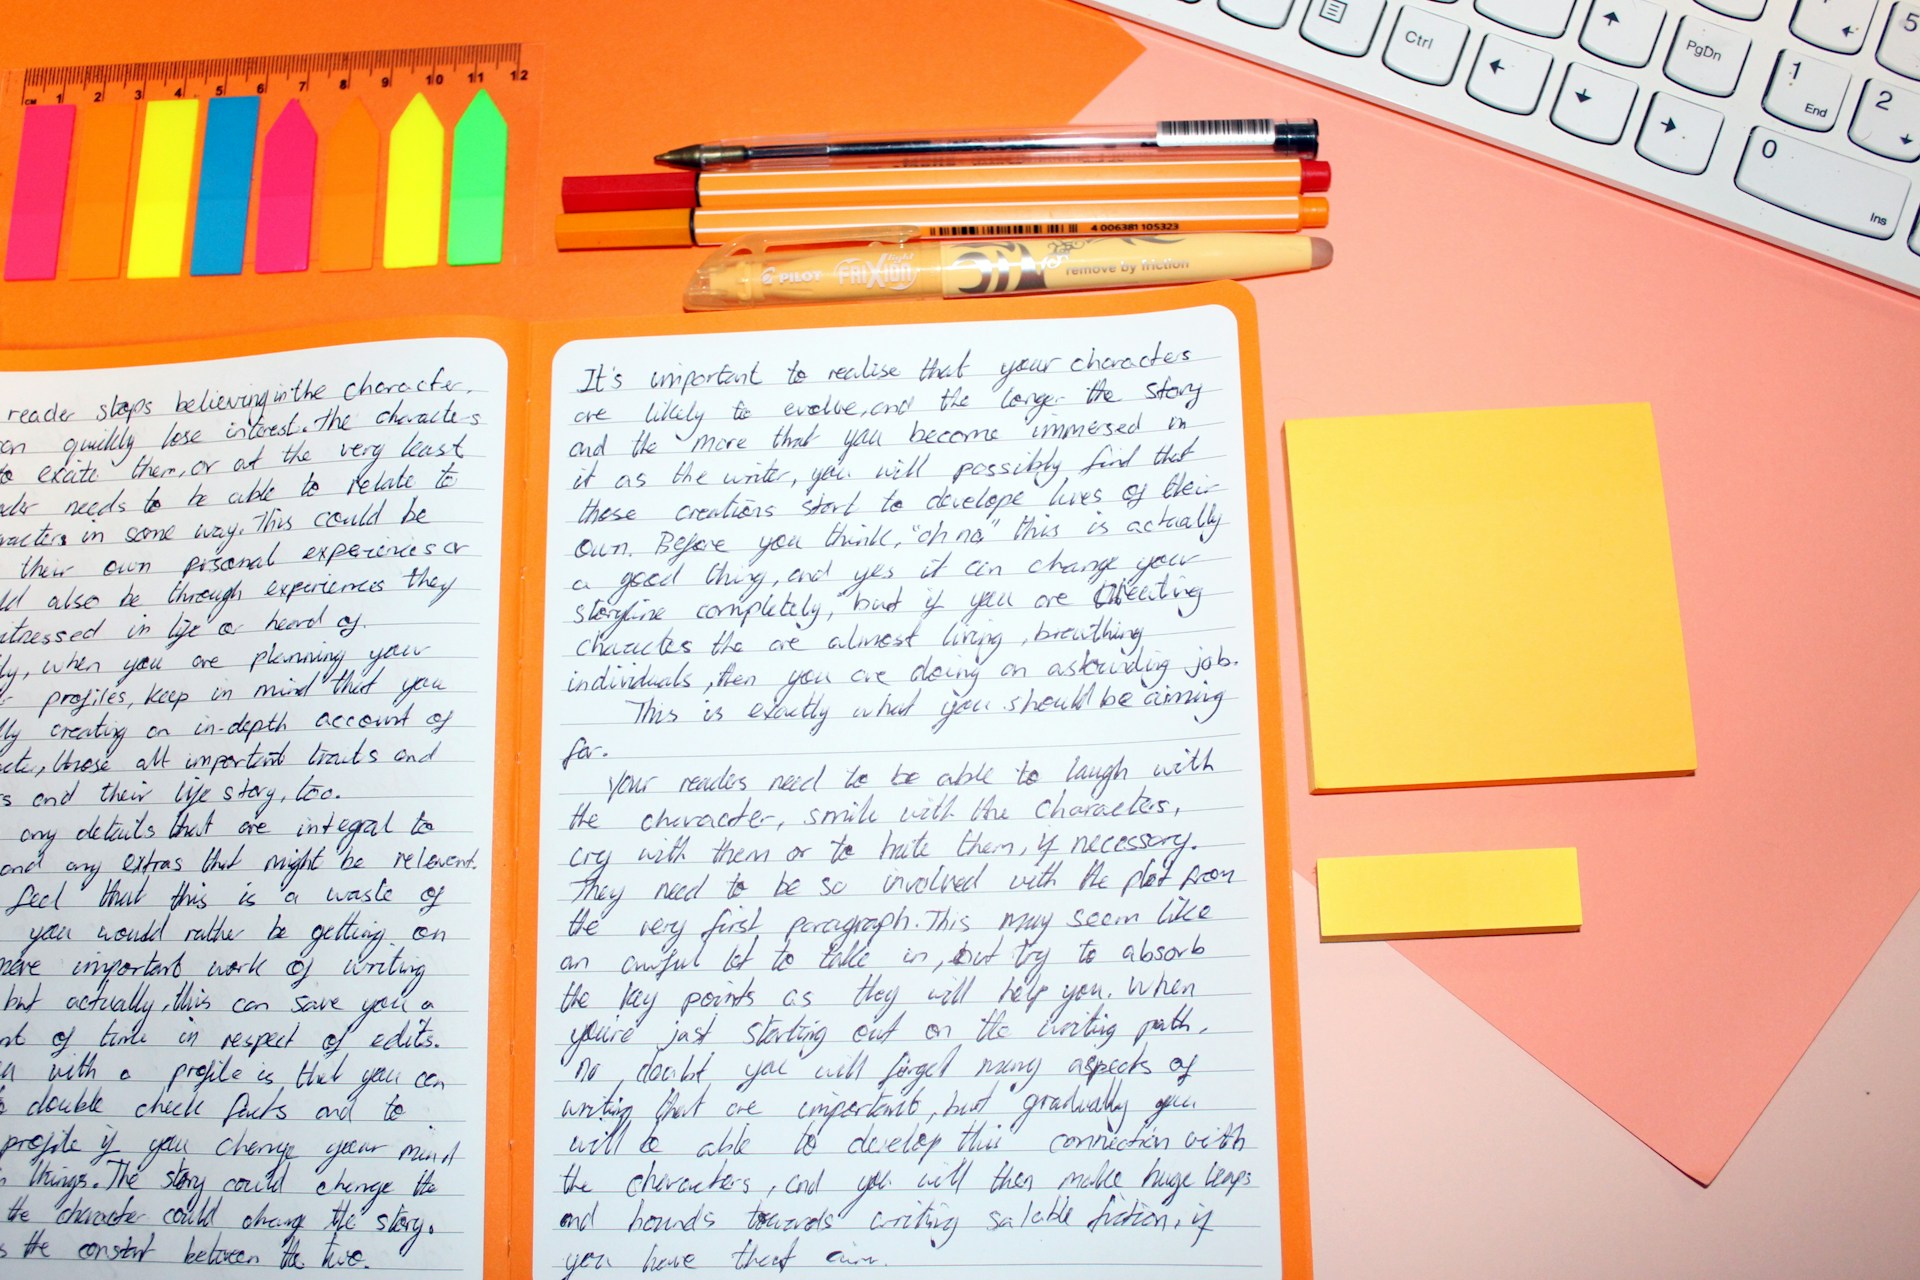 CM 1 2 3 4 5 6 7 8 9 10 11 12
Ctrl
PgDn
1
End
2
5
0
Ins
4 006381 105323
PILOT FRIXION light remove by friction
reader stops believing in the character.
quickly lose interest. The characters
to excite them, or at the very least
needs to be able to relate to
in some way. This could be
their own personal experiences or
also be through experiences they
in life or heard of.
when you are planning your
profiles, keep in mind that you
creating an in-depth account of
those all important traits and
and their life story, too.
any details that are integral to
and any extras that might be relevent.
feel that this is a waste of
you would rather be getting on
important work of writing
but actually, this can save you a
of time in respect of edits.
with a profile is that you can
double check facts and to
profile if you change your mind
things. The story could change the
the character could change the story.
the constant between the two.
It's important to realise that your characters
are likely to evolve, and the longer the story
and the more that you become immersed in
it as the writer, you will possibly find that
these creations start to develope lives of their
own. Before you think, "oh no" this is actually
a good thing, and yes it can change your
storyline completely, but if you are creating
characters the are almost living, breathing
individuals, then you are doing an astounding job.
This is exactly what you should be aiming
for.
Your readers need to be able to laugh with
the character, smile with the characters,
cry with them or to hate them, if necessary.
They need to be so involved with the plot from
the very first paragraph. This may seem like
an awful lot to take in, but try to absorb
the key points as they will help you. When
you're just starting out on the writing path,
no doubt you will forget many aspects of
writing that are important, but gradually you
will be able to develop this connection with
the characters, and you will then make huge leaps
and bounds towards writing salable fiction, if
you have that aim.